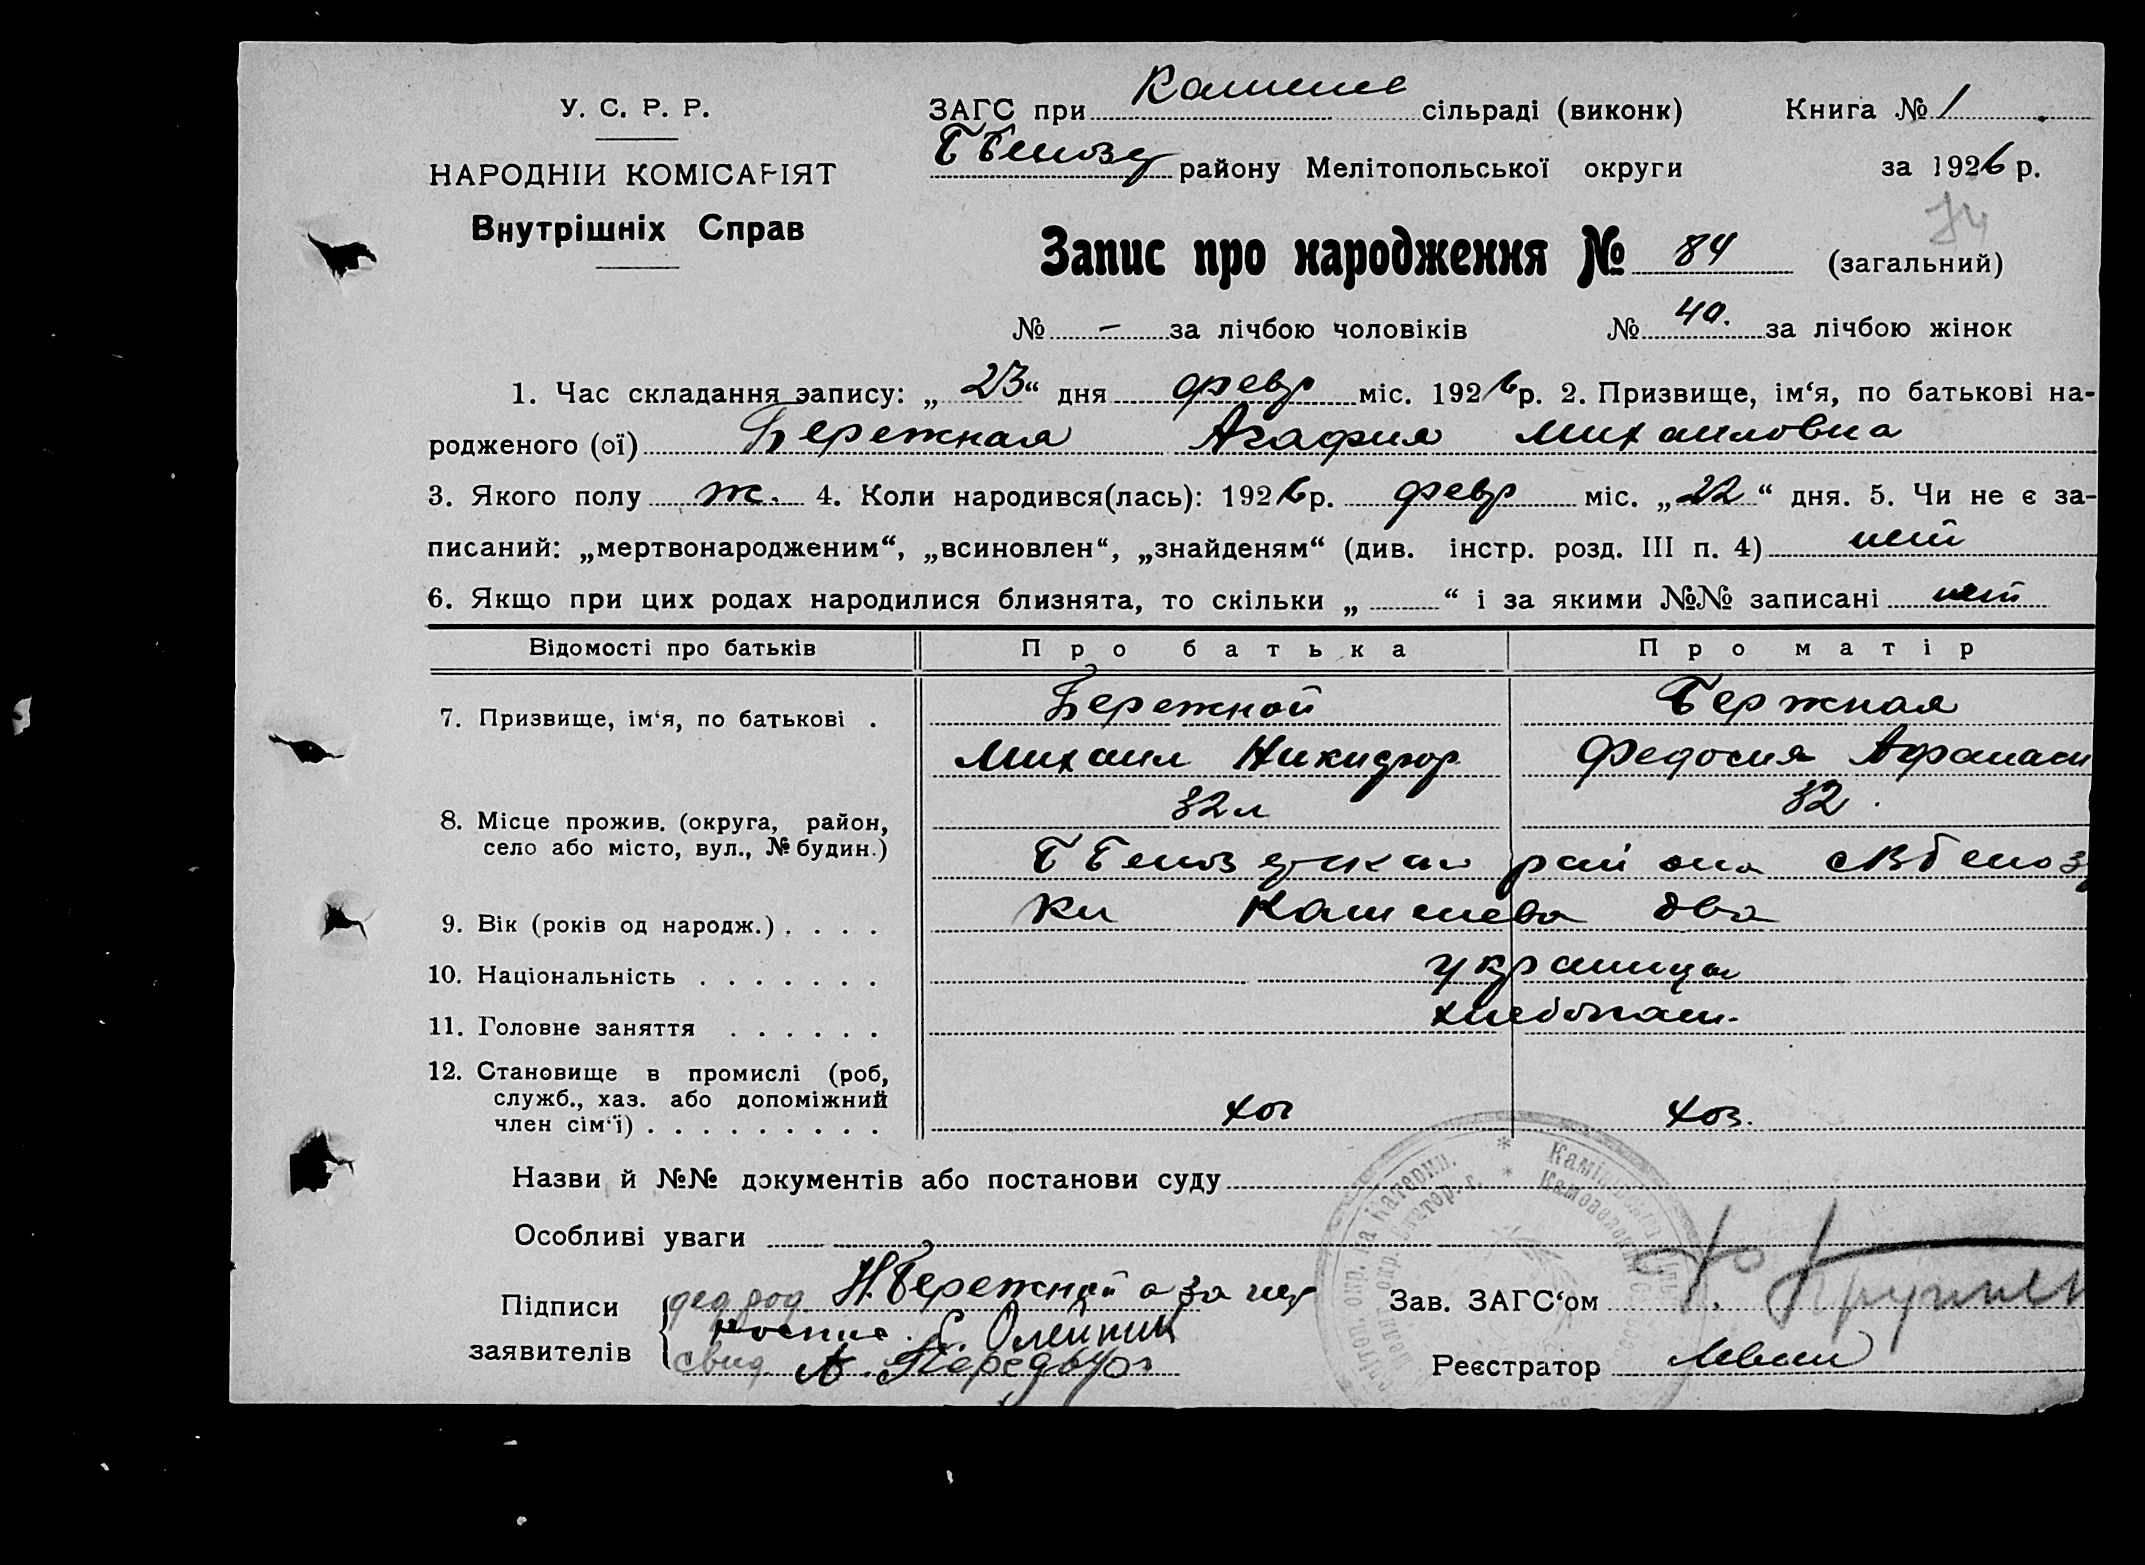 У. С. Р. Р.
НАРОДНІЙ КОМІСАРІЯТ
Внутрішніх Справ
ЗАГС при Камене сільраді (виконк) Книга № 1
ББелоз району Мелітопольської округи за 1926 р.
84
Запис про народження № 84 (загальний)
№ - за лічбою чоловіків № 40. за лічбою жінок
1. Час складання запису: „ 23 “ дня февр міс. 1926 р. 2. Призвище, ім‘я, по батькові на-
родженого (ої) Бережная Агафия Михаиловна
3. Якого полу ж. 4. Коли народився(лась): 1926 р. февр міс. „ 22 “ дня. 5. Чи не є за-
писаний: „мертвонародженим“, „всиновлен“, „знайденям“ (див. інстр. розд. III п. 4) нет
6. Якщо при цих родах народилися близнята, то скільки „ “ і за якими №№ записані нет
Відомості про батьків Про батька Про матір
7. Призвище, ім‘я, по батькові . Бережной Бержная
Михаил Никифор Федосия Афанаси
32 л 32 .
8. Місце прожив. (округа, район,
село або місто, вул., № будин.)
района
ки два
9. Вік (років од народж.) . . . .
10. Національність . . . . . . . украинцы
11. Головне заняття . . . . . . хлебопаш.
12. Становище в промислі (роб,
служб., хаз. або допоміжний
член сім‘ї) . . . . . . . . . хоз хоз.
Назви й №№ документів або постанови суду
Особливі уваги
Підписи
заявителів
дед род Н. Бережной а за нег
роспис. Е. Олейник
свид А.
Зав. ЗАГС‘ом
Реєстратор